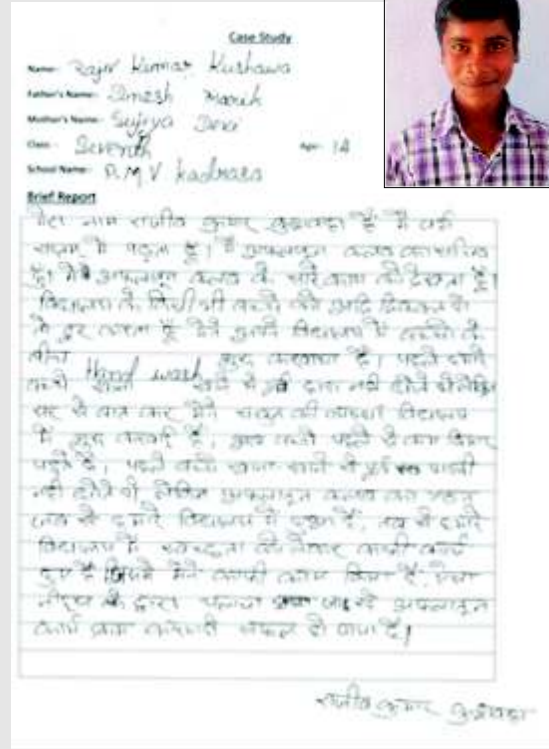 Case Study
Name:- Rajiv Kumar Kushawa
Father's Name:- Dinesh
Mother's Name:- Devi
Class:- Seventh Age:- 14
School Name:- R.M.V Kadrasa
Brief Report
मेरा नाम राजीव कुमार कुशवाहा है मै वर्ग
सप्तम में पढ़ता हूँ। मैं अफलातून क्लब का सचिव
हूँ। मैं अफलातून क्लब के सारे काम को देखता हूँ।
विद्यालय के किसी भी बच्चे को यदि दिक्कत हो
मै दूर करता हूँ मैने अपने विद्यालय में बच्चों के
बीच Hand wash शुरू करवाया है। पहले हमारे
बच्चे खाना खाने से पूर्व हाथ नहीं धोते थे लेकिन
सर से बात कर मैने साबुन की व्यवस्था विद्यालय
में शुरू करवाई है, कुछ बच्चे पहले से
है, पहले बच्चे खाना खाने से पूर्व हाथ
नहीं धोते थे, लेकिन अफलातून क्लब का गठन
जब से हमारे विद्यालय में हुआ है, तब से हमारे
विद्यालय में स्वच्छता को लेकर काफी कार्य
हुए है जिसमे मैने काफी काम किया है,
के द्वारा चलाया जा रहे अफलातून
कार्य सफल हो पाया है।
राजीव कुमार कुशवाहा